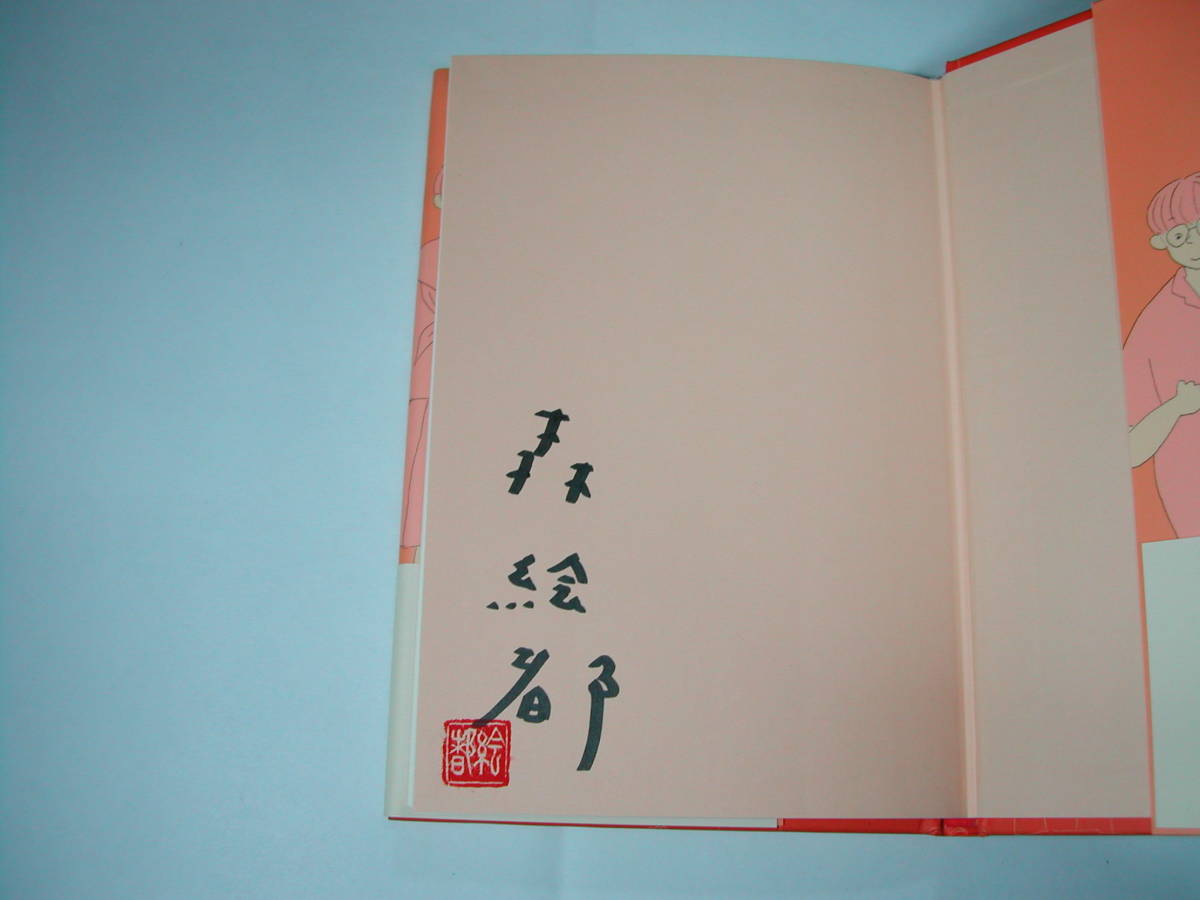 森
絵
都
絵都